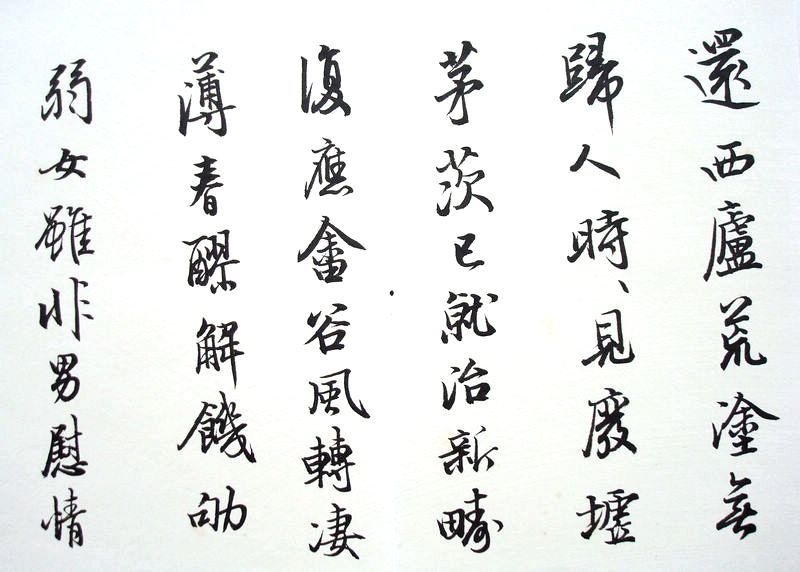 還西廬荒塗無
歸人時〻見廢墟
茅茨已就治新疇
復應畬谷風轉凄
薄春醪解饑劬
弱女雖非男慰情